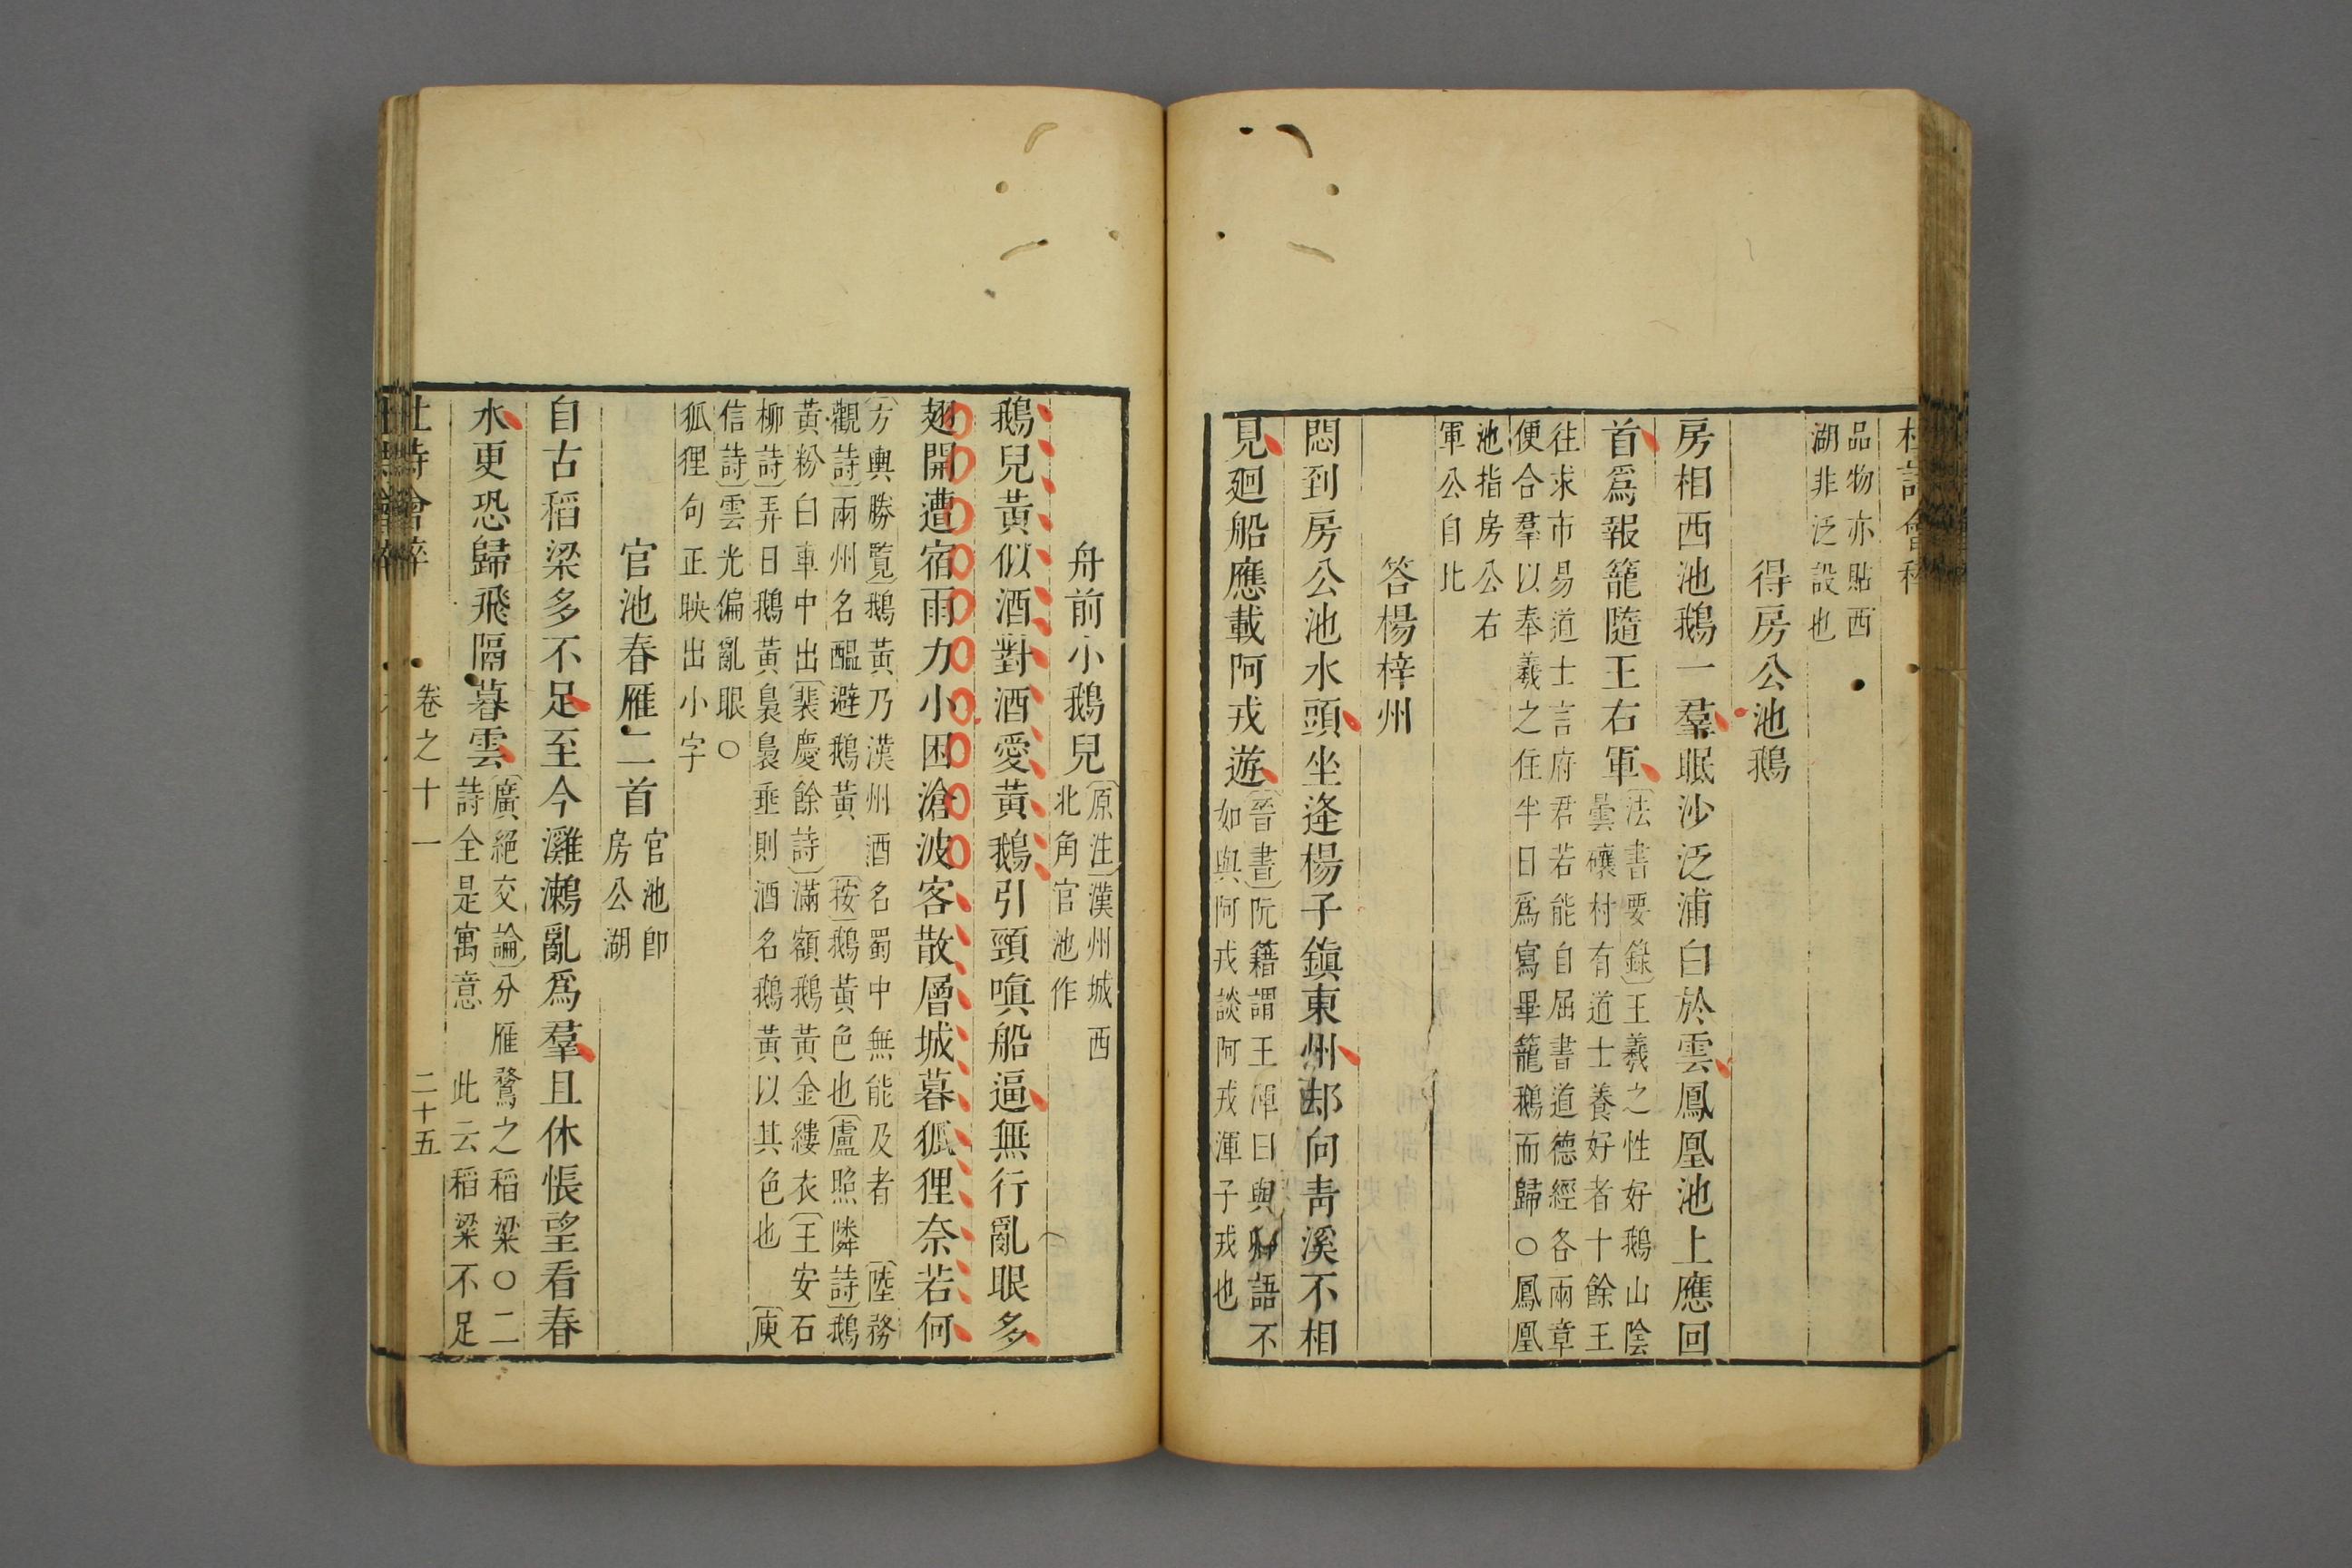 品物亦貼西
湖非泛設也
得房公池鵝
房相西池鵝一羣眠沙泛浦白於雲鳳凰池上應回
首爲報籠隨王右軍
〔法書要錄〕王羲之性好鵝山陰
曇𥗼村有道士養好者十餘王
往求市易道士言府君若能自屈書道德經各兩章
便合羣以奉羲之住半日爲寫畢籠鵝而歸○鳳凰
池指房公右
軍公自比
答楊梓州
悶到房公池水頭坐逢楊子鎮東州却向青溪不相
見廻船應載阿戎遊
〔晉書〕阮籍謂王渾曰與語不
如與阿戎談阿戎渾子戎也
舟前小鵝兒
〔原注〕漢州城西
北角官池作
鵝兒黃似酒對酒愛黃鵝引頸嗔船逼無行亂眼多
翅開遭宿雨力小困滄波客散層城暮狐狸奈若何
〔方輿勝覽〕鵝黃乃漢州酒名蜀中無能及者 〔陸務
觀詩〕兩州名醞避鵝黃 〔按〕鵝黃色也〔盧照隣詩〕鵝
黃粉白車中出〔裴慶餘詩〕滿額鵝黃金縷衣〔王安石
柳詩〕弄日鵝黃裊裊垂則酒名鵝黃以其色也 〔庾
信詩〕雲光偏亂眼○
狐狸句正映出小字
官池春雁二首
官池卽
房公湖
自古稻梁多不足至今鸂鶒亂爲羣且休悵望看春
水更恐歸飛隔暮雲
〔廣絕交論〕分雁鶩之稻粱○二
詩全是寓意 此云稻粱不足
杜詩會稡 卷之十一 二十五